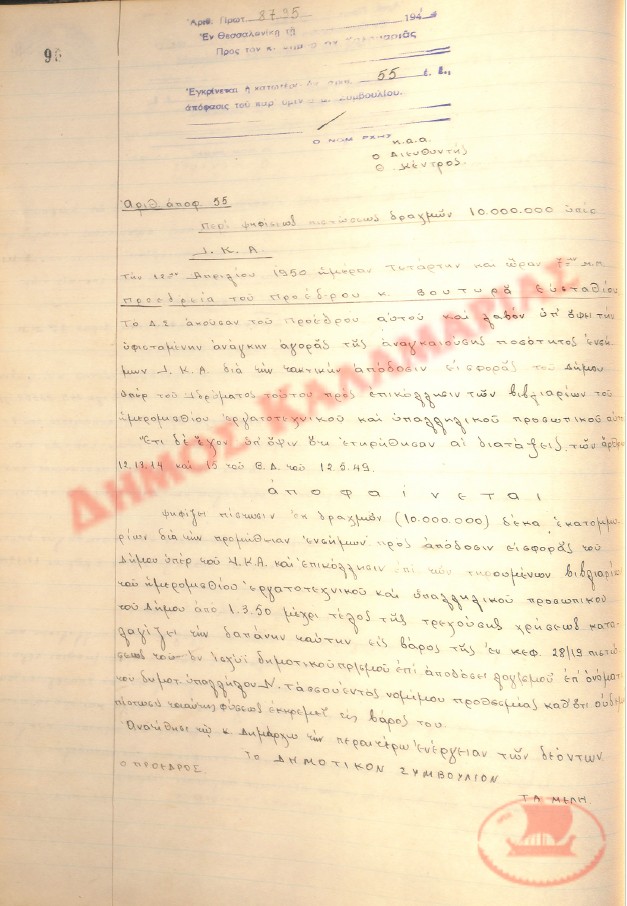 Αριθ. Πρωτ. 8735
Εν Θεσσαλονίκη τῇ 194
Προς τον κ.
Ἐγκρίνεται ἡ 55 ἐ. ἔ.,
ἀπόφασις τοῦ παρ' ὑμῖν Συμβουλίου.
Ο ΝΟΜΑΡΧΗΣ
κ.α.α.
ο Διευθυντής
Θ. Κέντρος
9
Ἀριθ. ἀποφ. 55
Περί ψηφίσεως πιστώσεως δραχμῶν 10.000.000 ὑπέρ
Ι.Κ.Α.
Τήν 12ην Ἀπριλίου 1950 ἡμέραν Τετάρτην καί ὥραν μ.μ.
Προεδρεία τοῦ Προέδρου κ. Βουτυρᾶ Εὐσταθίου
Το Δ.Σ. ἀκοῦσαν τοῦ Προέδρου αὐτοῦ καί λαβόν ὑπ' ὄψει τήν
ὑφισταμένην ἀνάγκην ἀγορᾶς τῆς ἀναγκαιούσης ποσότητος ἐνσή-
μων Ι.Κ.Α διά τήν τακτικήν ἀπόδοσιν εἰσφορᾶς τοῦ Δήμου
ὑπέρ τοῦ Ἱδρύματος τούτου πρός ἐπικόλλησιν τῶν βιβλιαρίων τοῦ
ἡμερομισθίου ἐργατοτεχνικοῦ καί ὑπαλληλικοῦ προσωπικοῦ
Ἔτι δέ ἔχον ὑπ' ὄψιν ὅτι ἐτηρήθησαν αἱ διατάξεις τῶν ἄρθρων
12.13.14 καί 15 τοῦ Β.Δ. τοῦ 12.5.49.
ἀποφαίνεται
Ψηφίζει πίστωσιν ἐκ δραχμῶν (10.000.000) δέκα ἑκατομμυ-
ρίων διά τήν προμήθειαν ἐνσήμων πρός ἀπόδοσιν εἰσφορᾶς τοῦ
Δήμου ὑπέρ τοῦ Ι.Κ.Α. καί ἐπικόλλησιν ἐπί τῶν τηρουμένων βιβλιαρίων
τοῦ ἡμερομισθίου ἐργατοτεχνικοῦ καί ὑπαλληλικοῦ προσωπικοῦ
τοῦ Δήμου ἀπό 1.3.50 μέχρι τέλος τῆς τρεχούσης χρήσεως κατα-
λογίζει τήν δαπάνην ταύτην εἰς βάρος τῆς ἐν κεφ. 28/19 πιστώ-
σεως τοῦ ἐν ἰσχύϊ δημοτικοῦ πρ/σμοῦ ἐπί ἀποδόσει λογ/σμοῦ ἐπ' ὀνόματι
του δημοτ. ὑπαλλήλου Ν. νομίμου προθεσμίας καθ' ὅτι οὐδεμία
πίστωσις τοιαύτης φύσεως ἐκκρεμεῖ εἰς βάρος του.
Ἀνατίθησι τῷ κ Δημάρχῳ τήν περαιτέρω ἐνέργειαν τῶν δεόντων.
ΤΟ ΔΗΜΟΤΙΚΟΝ ΣΥΜΒΟΥΛΙΟΝ
Ο ΠΡΟΕΔΡΟΣ.
ΤΑ ΜΕΛΗ
ΔΗΜΟΣ ΚΑΛΑΜΑΡΙΑΣ